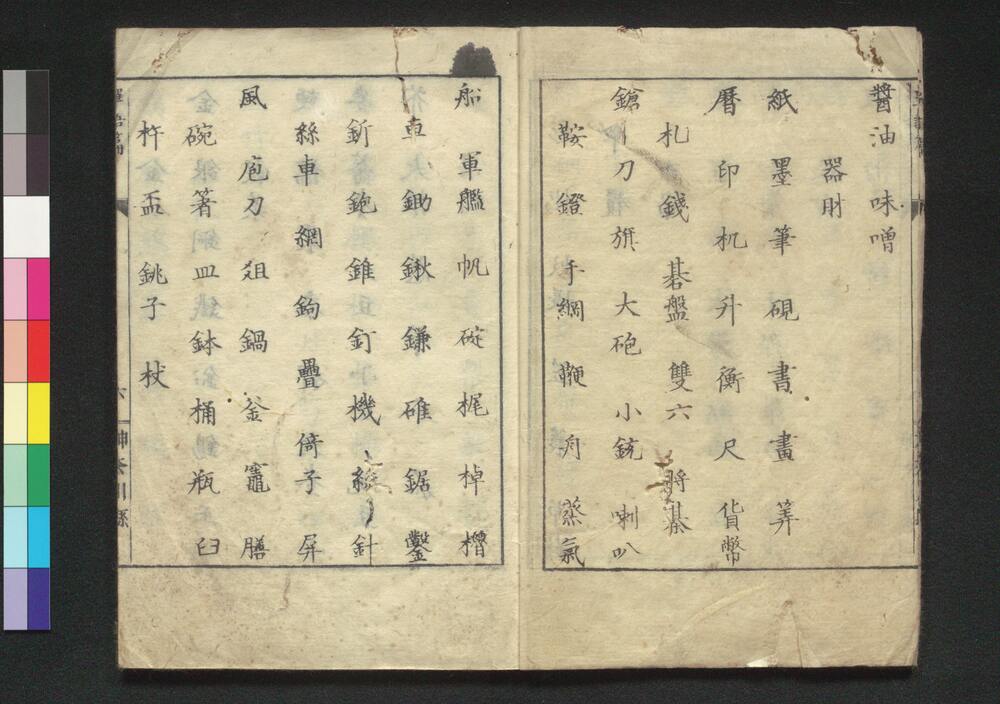 醬油 味噌
器財
紙 墨 筆 硯 書 畫 筭
曆 印 机 升 衡 尺 貨幣
札 錢 碁盤 雙六 將棊
鎗 刀 旂 大砲 小銃 喇叭
鞍 鐙 手綱 鞭 舟 蒸氣
船 軍艦 帆 碇 梶 棹 櫓
車 鋤 鍬 鎌 碓 鋸 鑿
釿 鉋 錐 釘 機 針
絲車 網 鉤 疊 倚子 屏
風 庖刀 俎 鍋 釜 竈 膳
碗 箸 皿 鉢 桶 瓶 臼
杵 盃 銚子 杖
六
神奈川縣